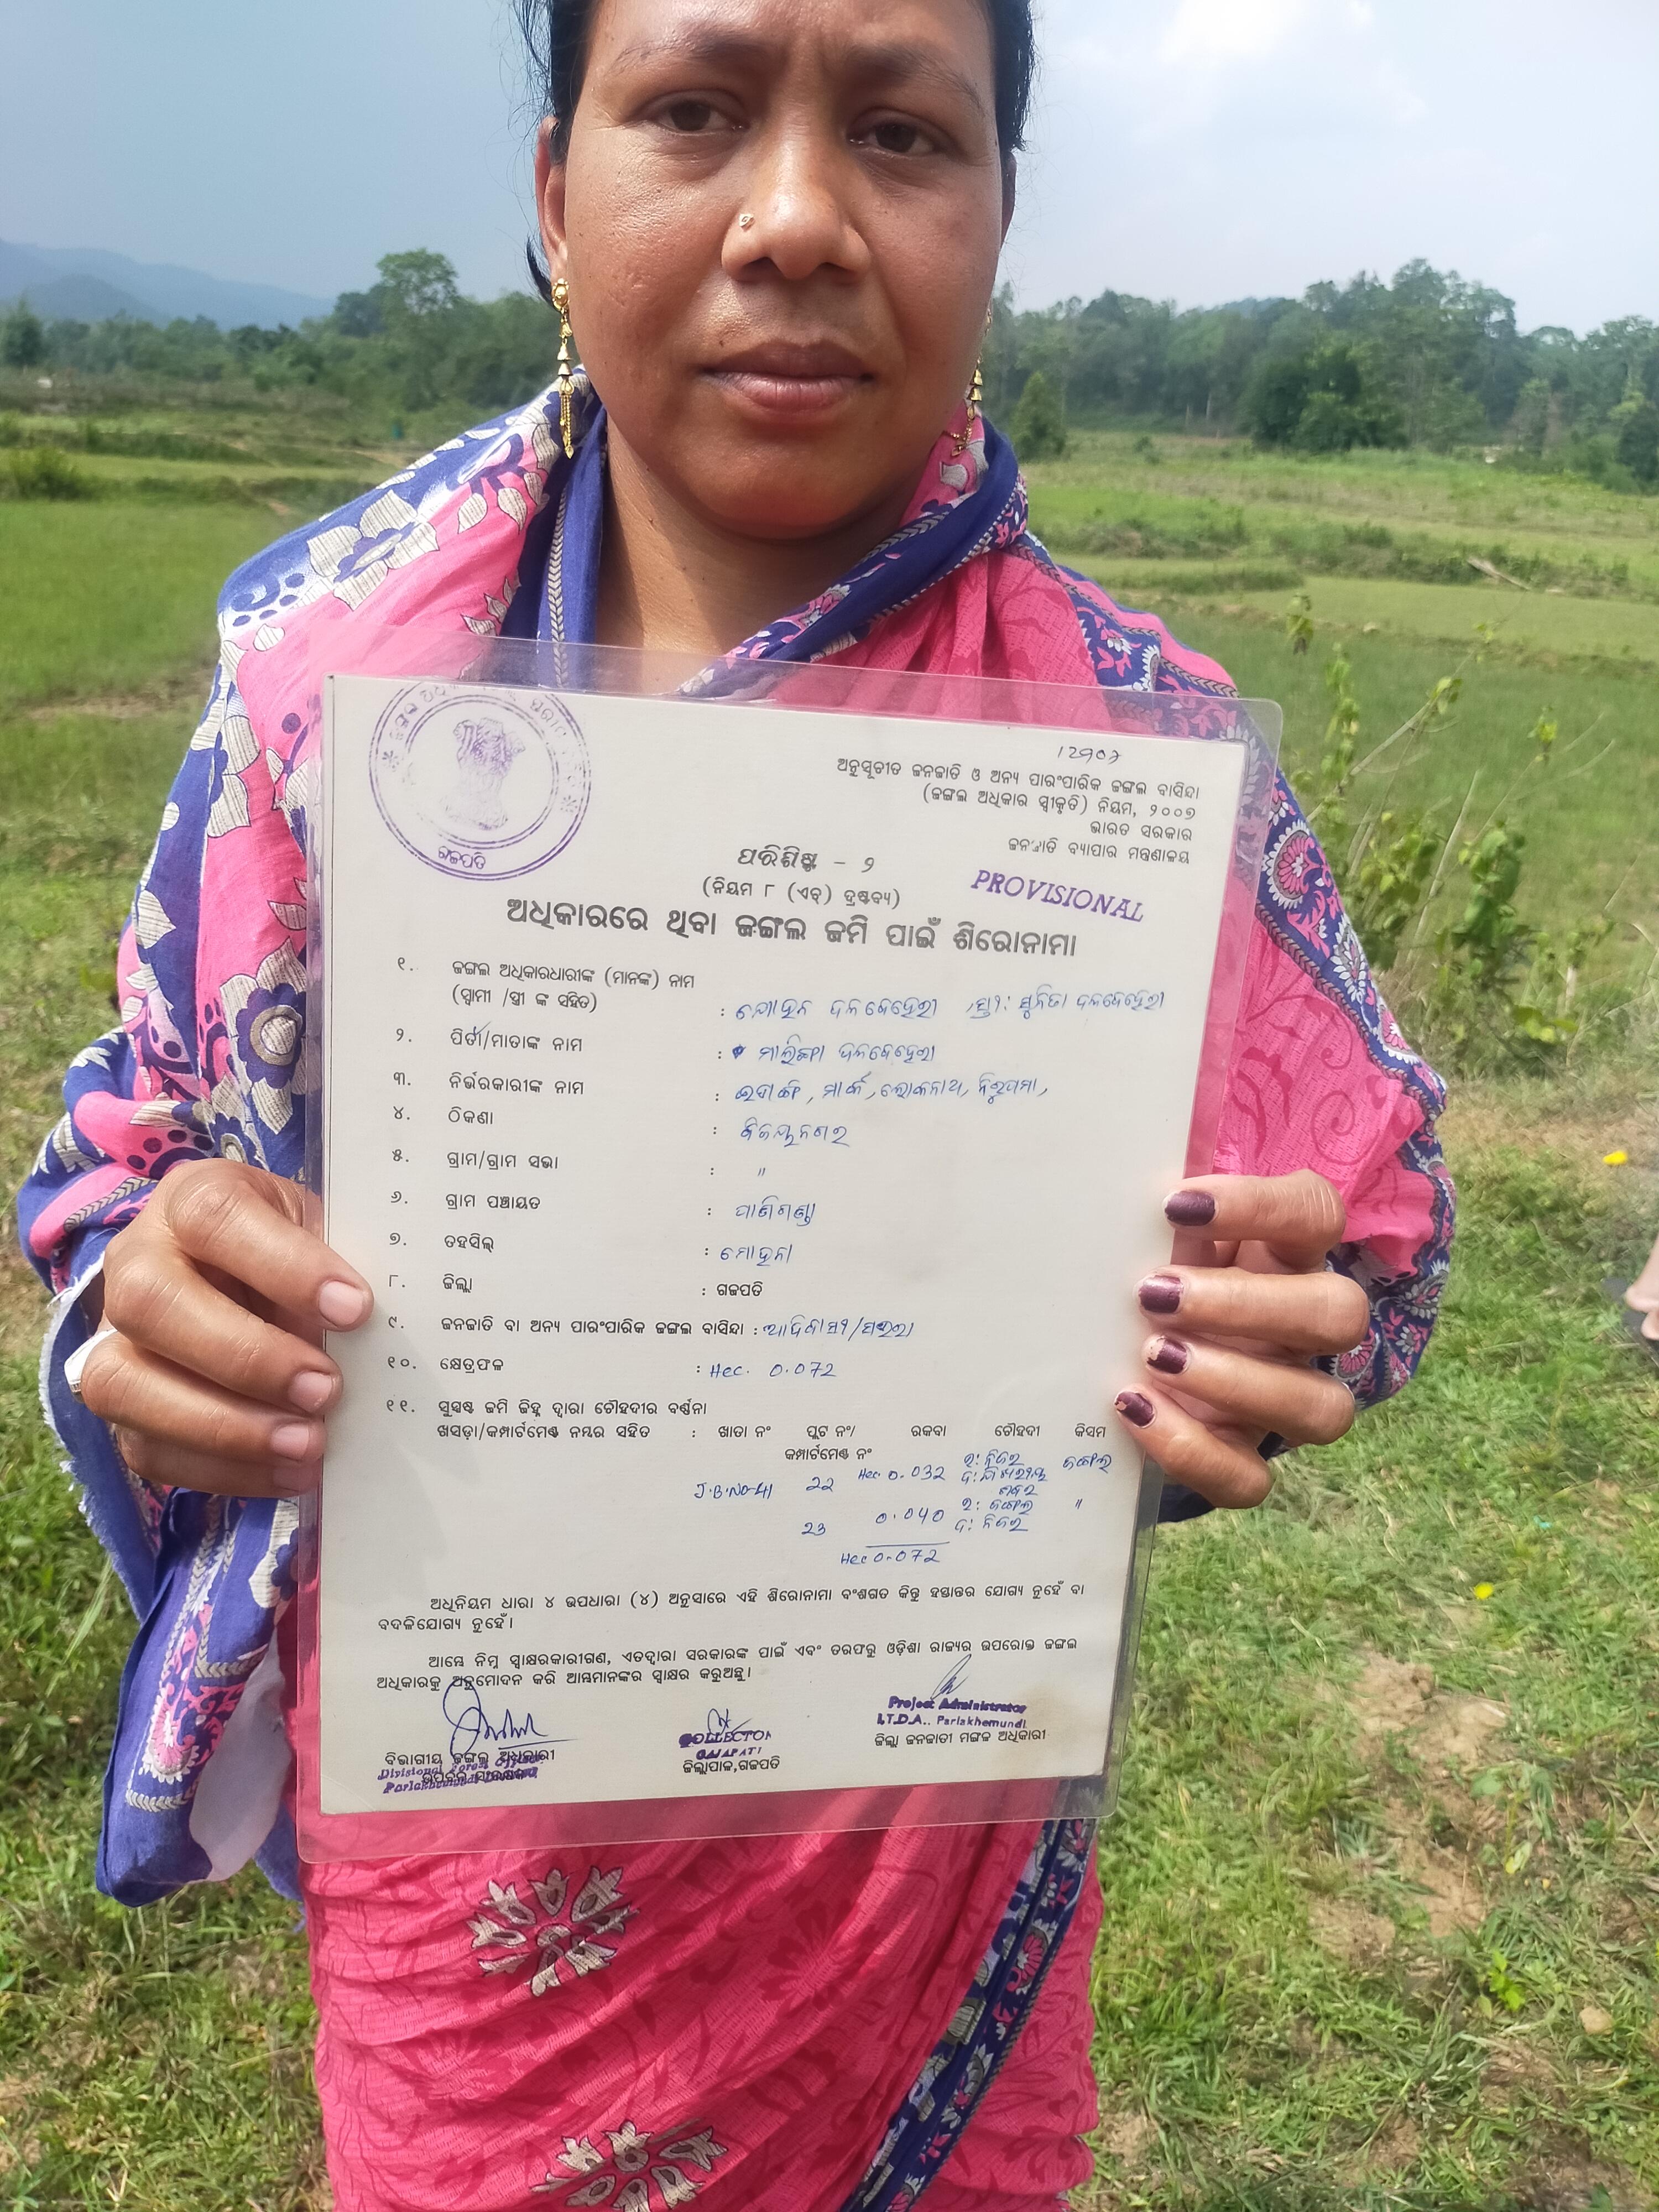 ଗଜପତି
ଅନୁସୂଚୀତ ଜନଜାତି ଓ ଅନ୍ୟ ପାରଂପାରିକ ଜଙ୍ଗଲ ବାସିନ୍ଦା
(ଜଙ୍ଗଲ ଅଧିକାର ସ୍ୱୀକୃତି) ନିୟମ, ୨୦୦୭
ଭାରତ ସରକାର
ଜନଜାତି ବ୍ୟାପାର ମନ୍ତ୍ରଣାଳୟ
ପରିଶିଷ୍ଟ - ୨
PROVISIONAL
(ନିୟମ ୮ (ଏଚ୍) ଦ୍ରଷ୍ଟବ୍ୟ)
ଅଧିକାରରେ ଥିବା ଜଙ୍ଗଲ ଜମି ପାଇଁ ଶିରୋନାମା
୧. ଜଙ୍ଗଲ ଅଧିକାରଧାରୀଙ୍କ (ମାନଙ୍କ) ନାମ
(ସ୍ୱାମୀ /ସ୍ତ୍ରୀ ଙ୍କ ସହିତ) : ମୋହନ ଦଳବେହେରା ସ୍ତ୍ରୀ: ସୁନିତା ଦଳବେହେରା
୨. ପିତା/ମାତାଙ୍କ ନାମ : ଦଳବେହେରା
୩. ନିର୍ଭରକାରୀଙ୍କ ନାମ : ମାର୍କ, ଲୋକନାଥ, ନିରୁପମା,
୪. ଠିକଣା : ବିଜୟନଗର
୫. ଗ୍ରାମ/ଗ୍ରାମ ସଭା : "
୬. ଗ୍ରାମ ପଞ୍ଚାୟତ : ପାଣିଗଣ୍ଡା
୭. ତହସିଲ୍ : ମୋହନା
୮. ଜିଲ୍ଲା : ଗଜପତି
୯. ଜନଜାତି ବା ଅନ୍ୟ ପାରଂପାରିକ ଜଙ୍ଗଲ ବାସିନ୍ଦା : ଆଦିବାସୀ/
୧୦. କ୍ଷେତ୍ରଫଳ : Hec. 0.072
୧୧. ସୁସ୍ପଷ୍ଟ ଜମି ଚିହ୍ନ ଦ୍ୱାରା ଚୌହଦୀର ବର୍ଣ୍ଣନା
ଖସଡ଼ା/କମ୍ପାର୍ଟମେଣ୍ଟ ନମ୍ବର ସହିତ : ଖାତା ନଂ ପ୍ଲଟ ନଂ/ ରକବା ଚୌହଦୀ କିସମ
କମ୍ପାର୍ଟମେଣ୍ଟ ନଂ
J.B.No-41 22 Hec. 0.032 ଉ: ନିଜର ଜଙ୍ଗଲ
23 0.040 ଉ: ଜଙ୍ଗଲ "
ଦ: ନିଜର
Hec 0.072
ଅଧିନିୟମ ଧାରା ୪ ଉପଧାରା (୪) ଅନୁସାରେ ଏହି ଶିରୋନାମା ବଂଶଗତ କିନ୍ତୁ ହସ୍ତାନ୍ତର ଯୋଗ୍ୟ ନୁହେଁ ବା
ବଦଳିଯୋଗ୍ୟ ନୁହେଁ।
ଆମ୍ଭେ ନିମ୍ନ ସ୍ୱାକ୍ଷରକାରୀଗଣ, ଏତଦ୍ୱାରା ସରକାରଙ୍କ ପାଇଁ ଏବଂ ତରଫରୁ ଓଡ଼ିଶା ରାଜ୍ୟର ଉପରୋକ୍ତ ଜଙ୍ଗଲ
ଅଧିକାରକୁ ଅନୁମୋଦନ କରି ଆମ୍ଭମାନଙ୍କର ସ୍ୱାକ୍ଷର କରୁଅଛୁ।
Project Administrator
I.T.D.A., Parlakhemundi
ଜିଲ୍ଲା ଜନଜାତୀ ମଙ୍ଗଳ ଅଧିକାରୀ
COLLECTOR
GAJAPATI
ଜିଲ୍ଲାପାଳ,ଗଜପତି
ବିଭାଗୀୟ ଜଙ୍ଗଲ ଅଧିକାରୀ
Divisional Forest Officer